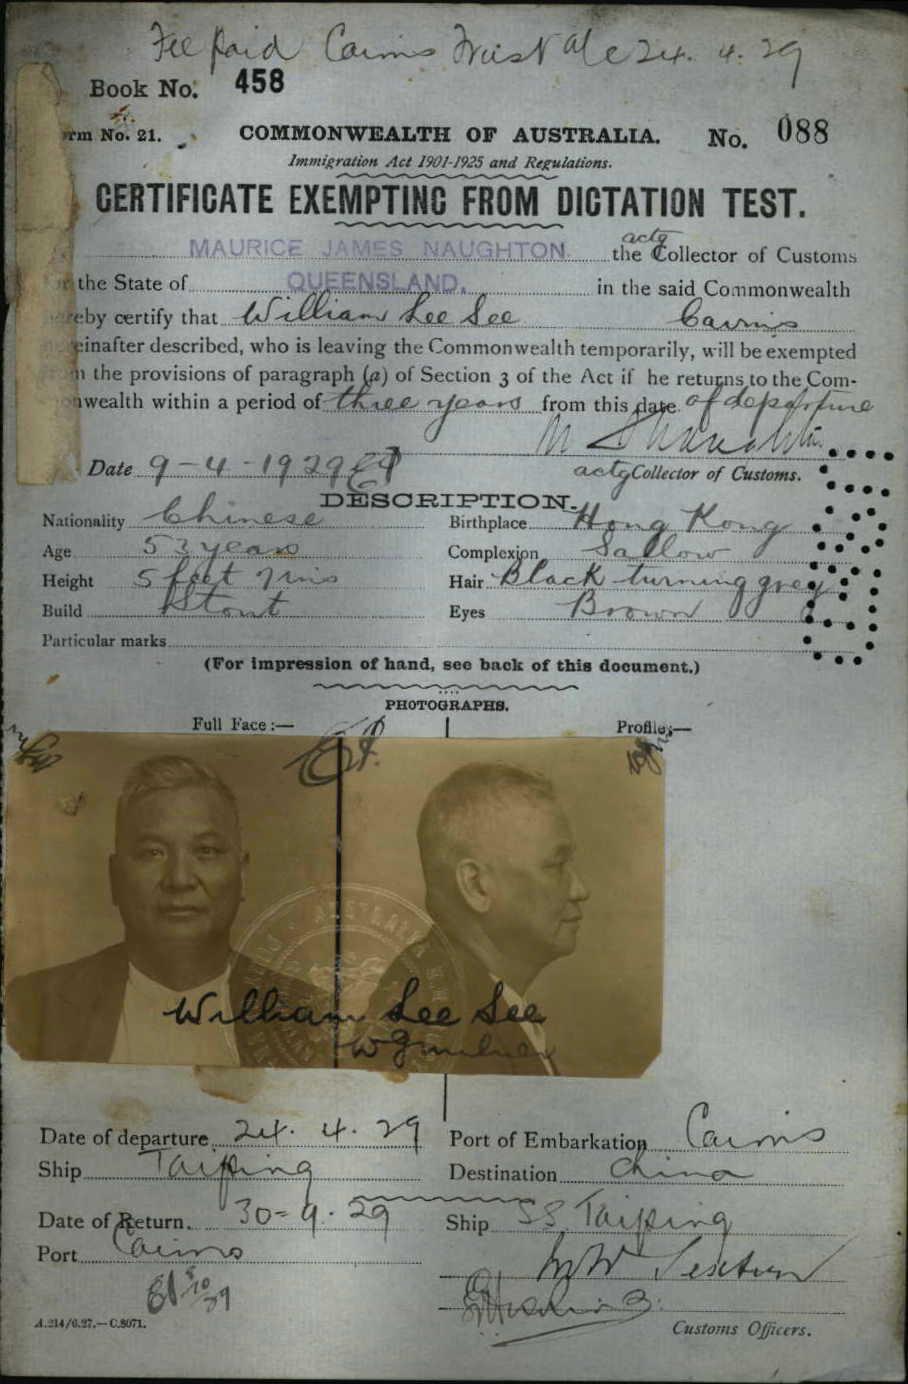 Fee Paid Cairns Trust a/c 24.4.29
Book No. 458
rm No. 21. COMMONWEALTH OF AUSTRALIA. No. 088
Immigration Act 1901-1925 and Regulations.
CERTIFICATE EXEMPTING FROM DICTATION TEST.
MAURICE JAMES NAUGHTON the actg Collector of Customs
the State of QUEENSLAND. in the said Commonwealth
eby certify that William Lee See Cairns
einafter described, who is leaving the Commonwealth temporarily, will be exempted
the provisions of paragraph (a) of Section 3 of the Act if he returns to the Com-
nwealth within a period of three years from this date of departure
M J Naughton
Date 9-4-1929 actg Collector of Customs.
DESCRIPTION.
Nationality Chinese Birthplace Hong Kong
Age 53 years Complexion Sallow
Height 5 feet 7 ins Hair Black turning grey
Build Stout Eyes Brown
Particular marks
(For impression of hand, see back of this document.)
PHOTOGRAPHS.
Full Face:— Profile:—
AUSTRALIA
William Lee See
Date of departure 24.4.29 Port of Embarkation Cairns
Ship Taiping Destination China
Date of Return. 30-9-29 Ship SS Taiping
Port Cairns
A.214/6.27.—C.8071.
Customs Officers.